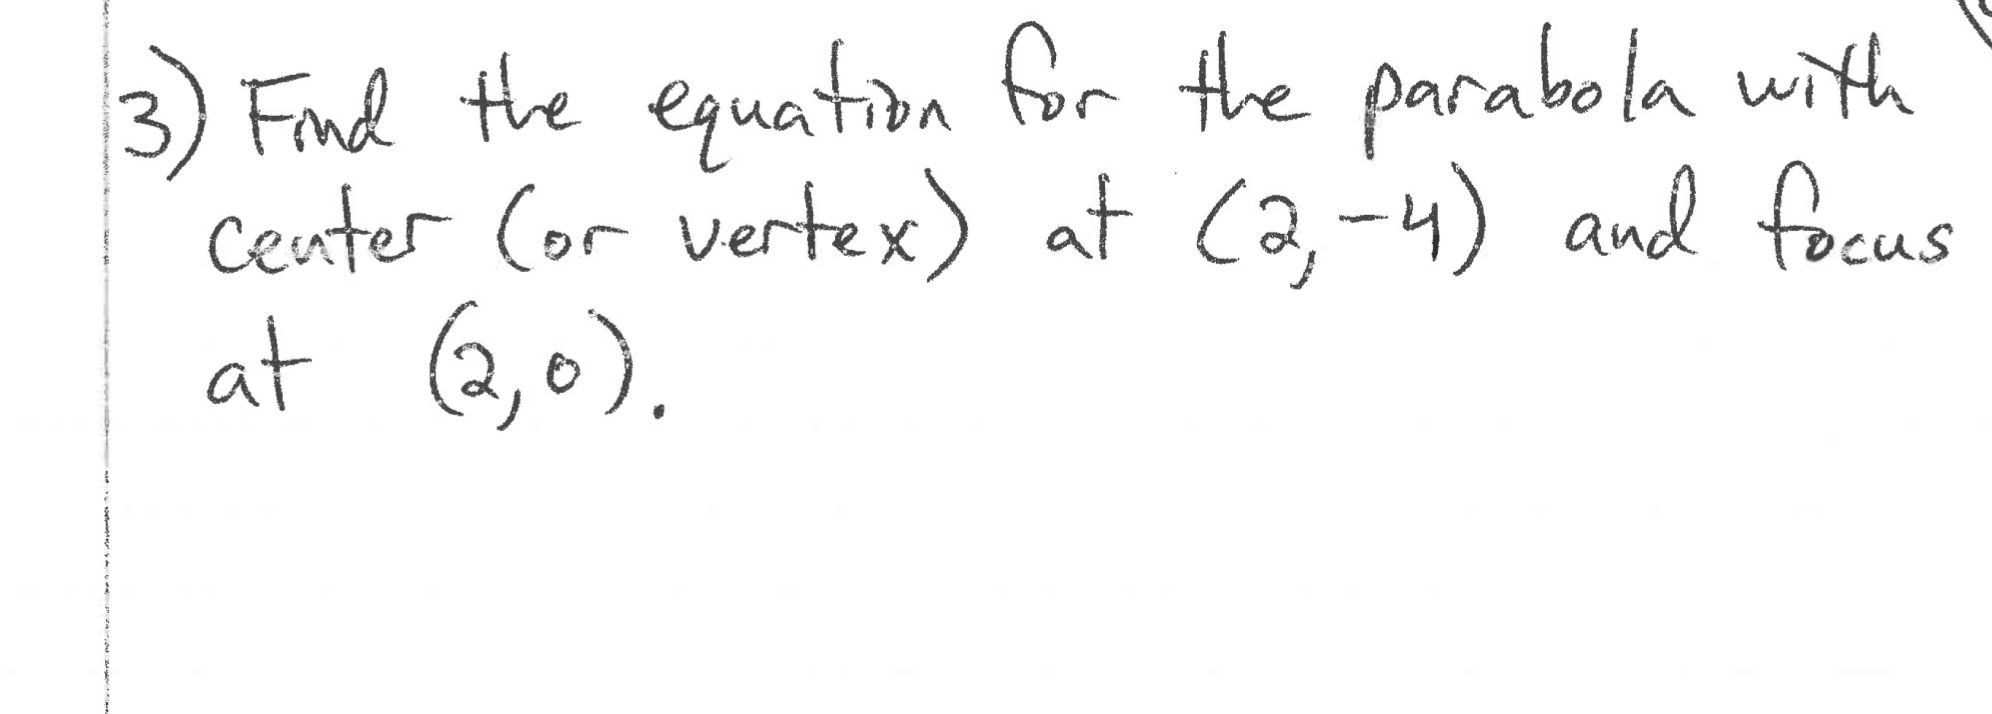 3) Find the equation for the parabola with
center (or vertex) at (2,-4) and focus
at (2,0).